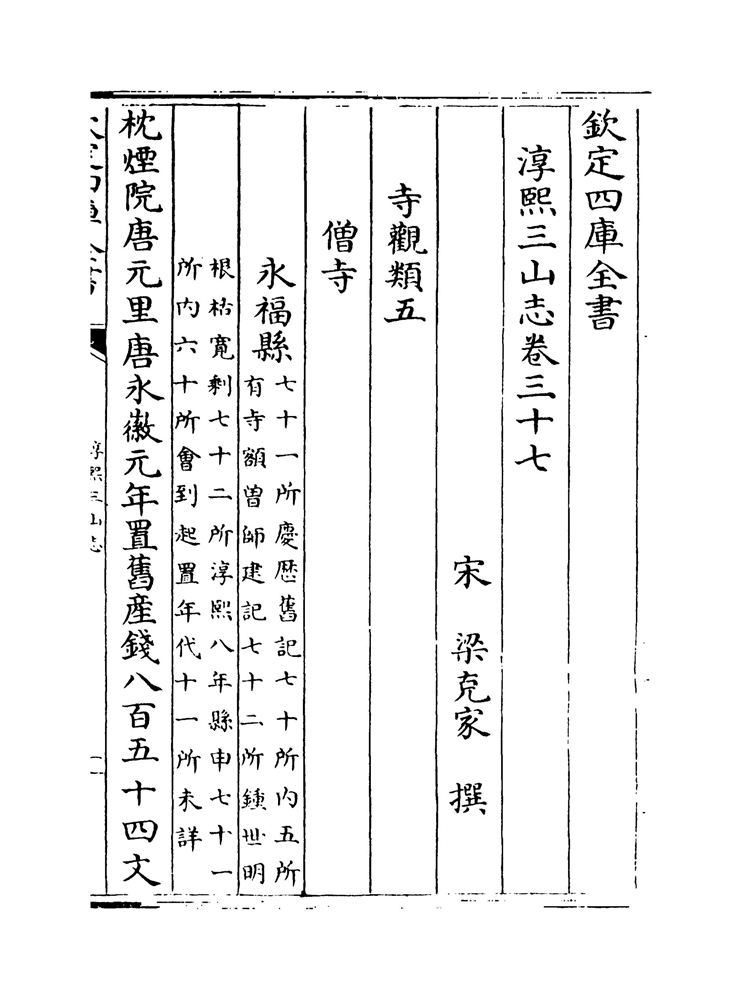 欽定四庫全書
淳熙三山志卷三十七
宋 梁克家 撰
寺觀類五
僧寺
永福縣
七十一所慶歷舊記七十所内五所
有寺額曽師建記七十二所鍾世明
根枯寛剩七十二所淳熙八年縣申七十一
所内六十所會到起置年代十一所未詳
枕煙院唐元里唐永徽元年置舊産錢八百五十四文
淳熙三山志